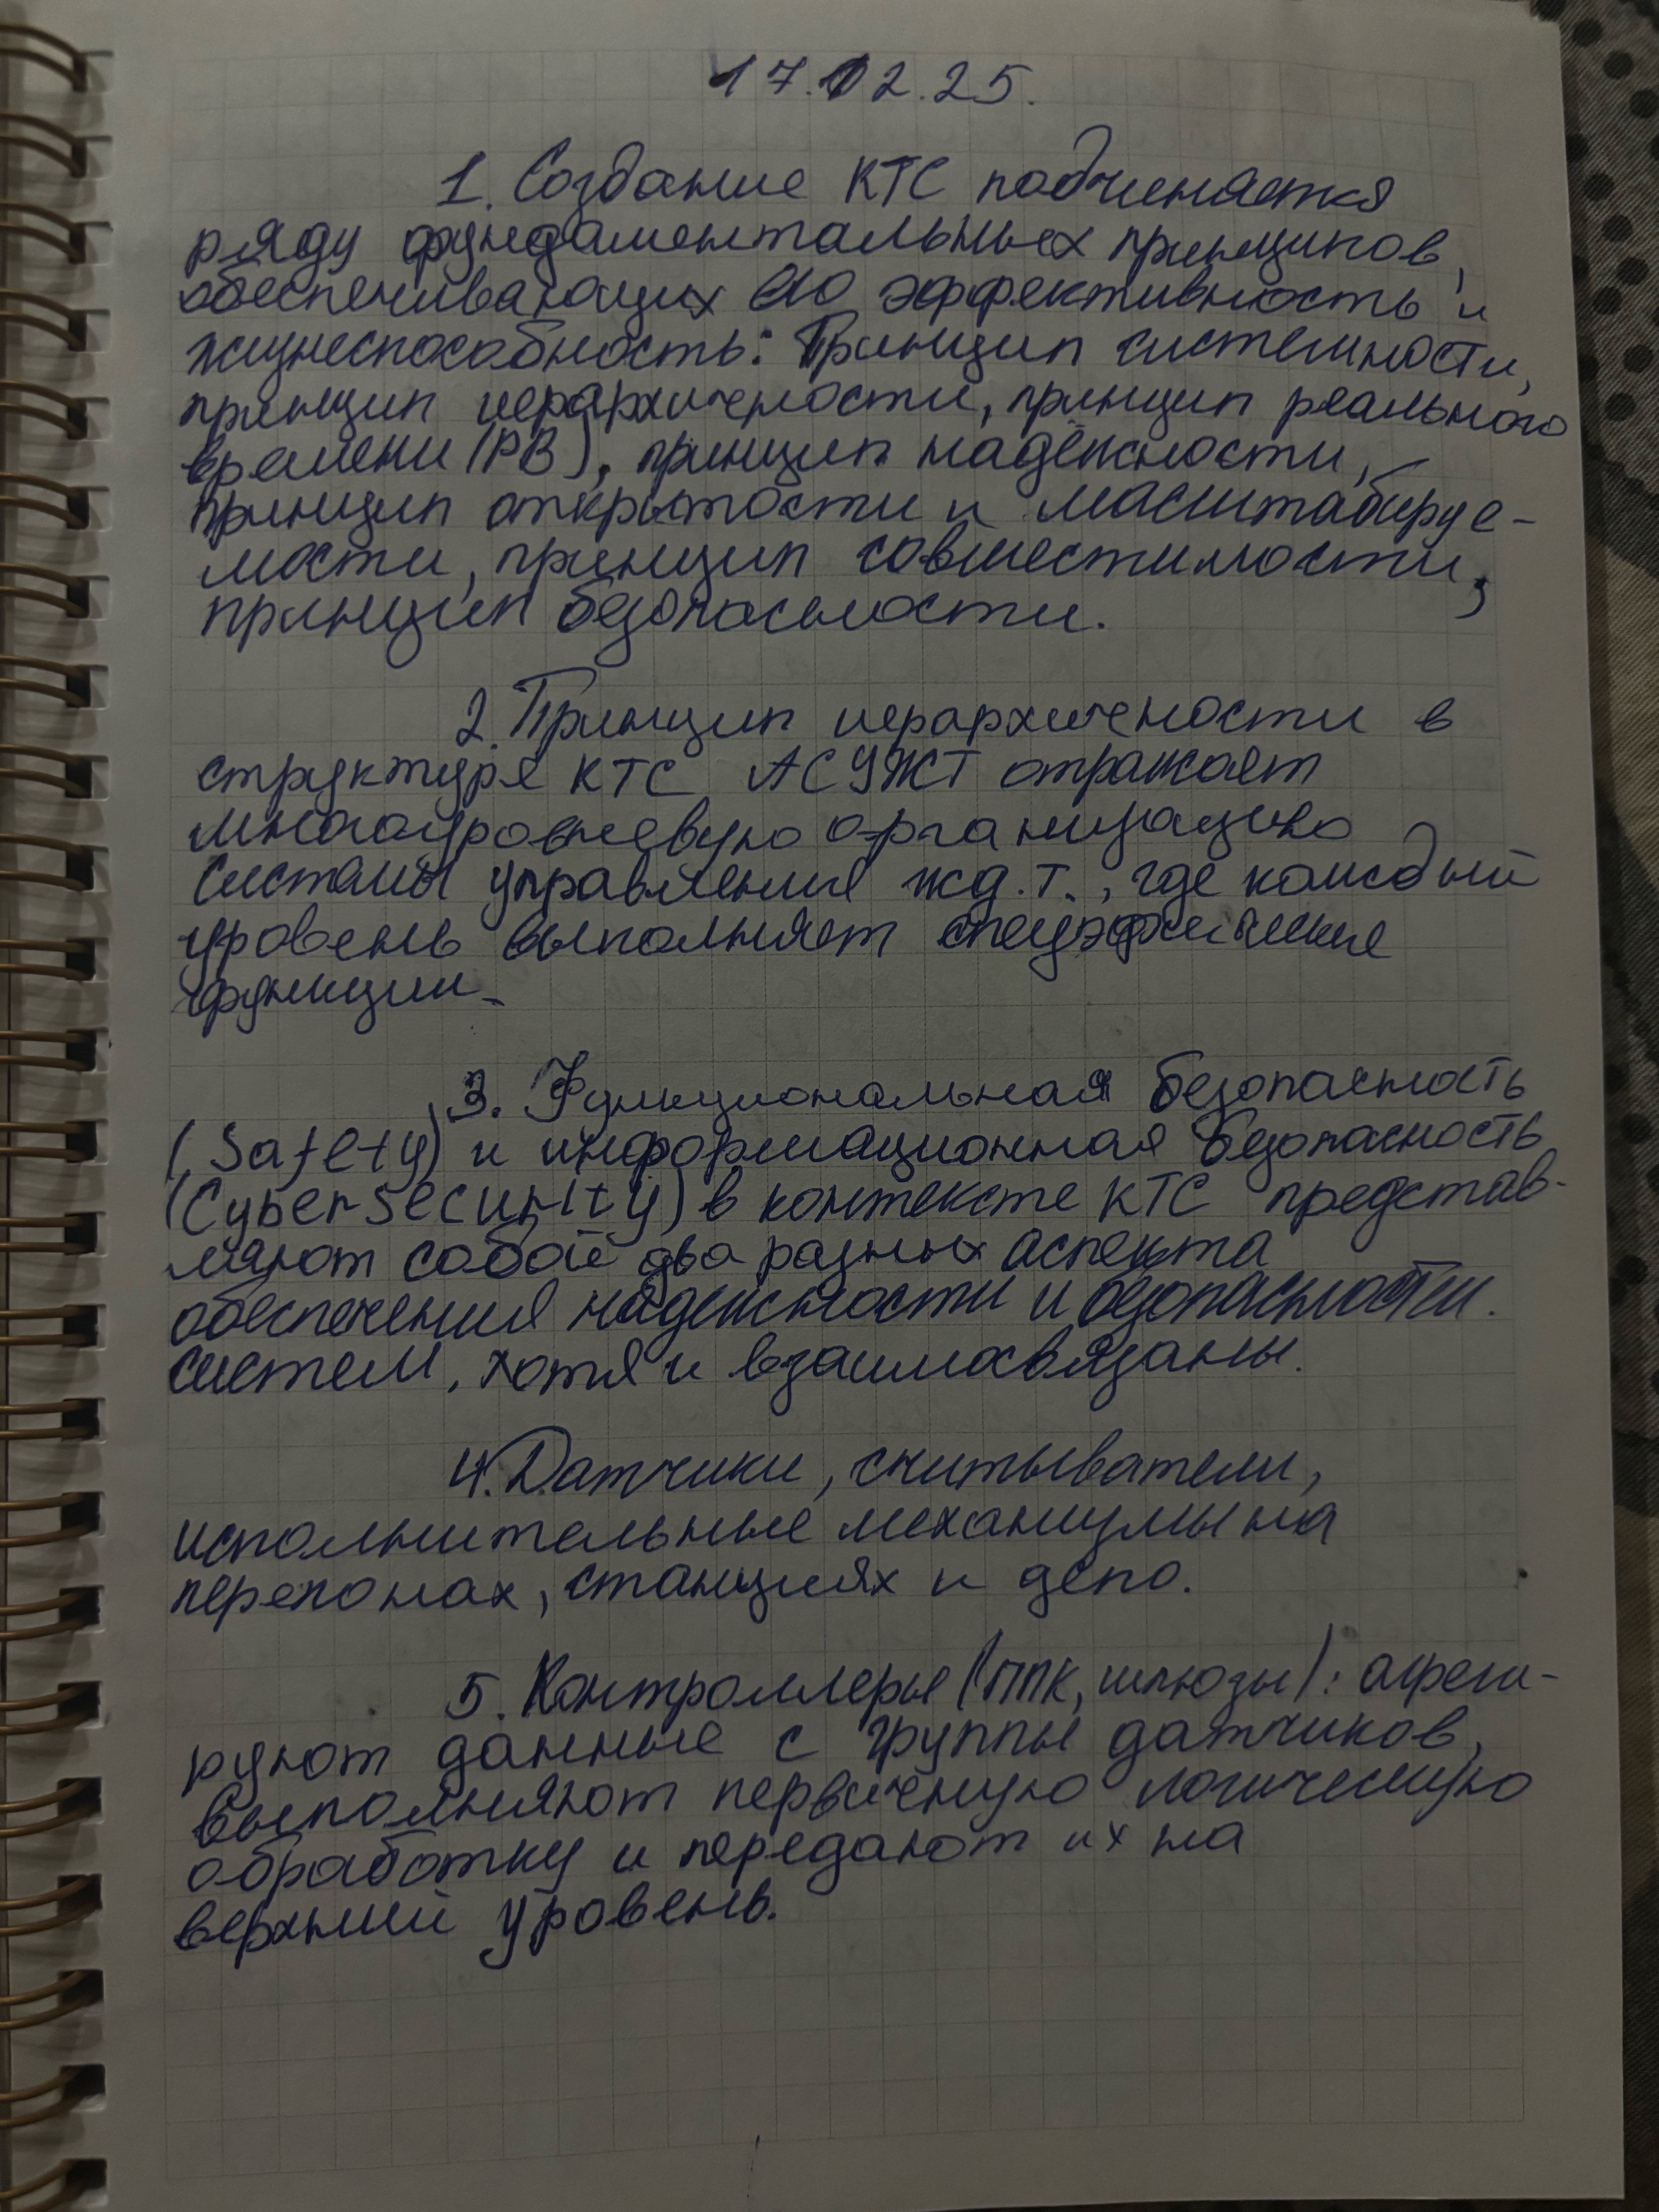 17.12.25.
1. Создание КТС подчиняется
ряду фундаментальных принципов,
обеспечивающих его эффективность и
жизнеспособность: Принцип системности,
принцип иерархичности, принцип реального
времени (РВ), принцип надёжности,
принцип открытости и масштабируе-
мости, принцип совместимости,
принцип безопасности.
2. Принцип иерархичности в
структуре КТС АСУЖТ отражает
многоуровневую организацию
системы управления жд.т., где каждый
уровень выполняет специфические
функции.
3. Функциональная безопасность
(Safety) и информационная безопасность
(Cybersecurity) в контексте КТС представ-
ляют собой два разных аспекта
обеспечения надежности и безопасности
систем, хотя и взаимосвязаны.
4. Датчики, считыватели,
исполнительные механизмы на
перегонах, станциях и депо.
5. Контроллеры (ППК, шлюзы): агреги-
руют данные с группы датчиков,
выполняют первичную логическую
обработку и передают их на
верхний уровень.